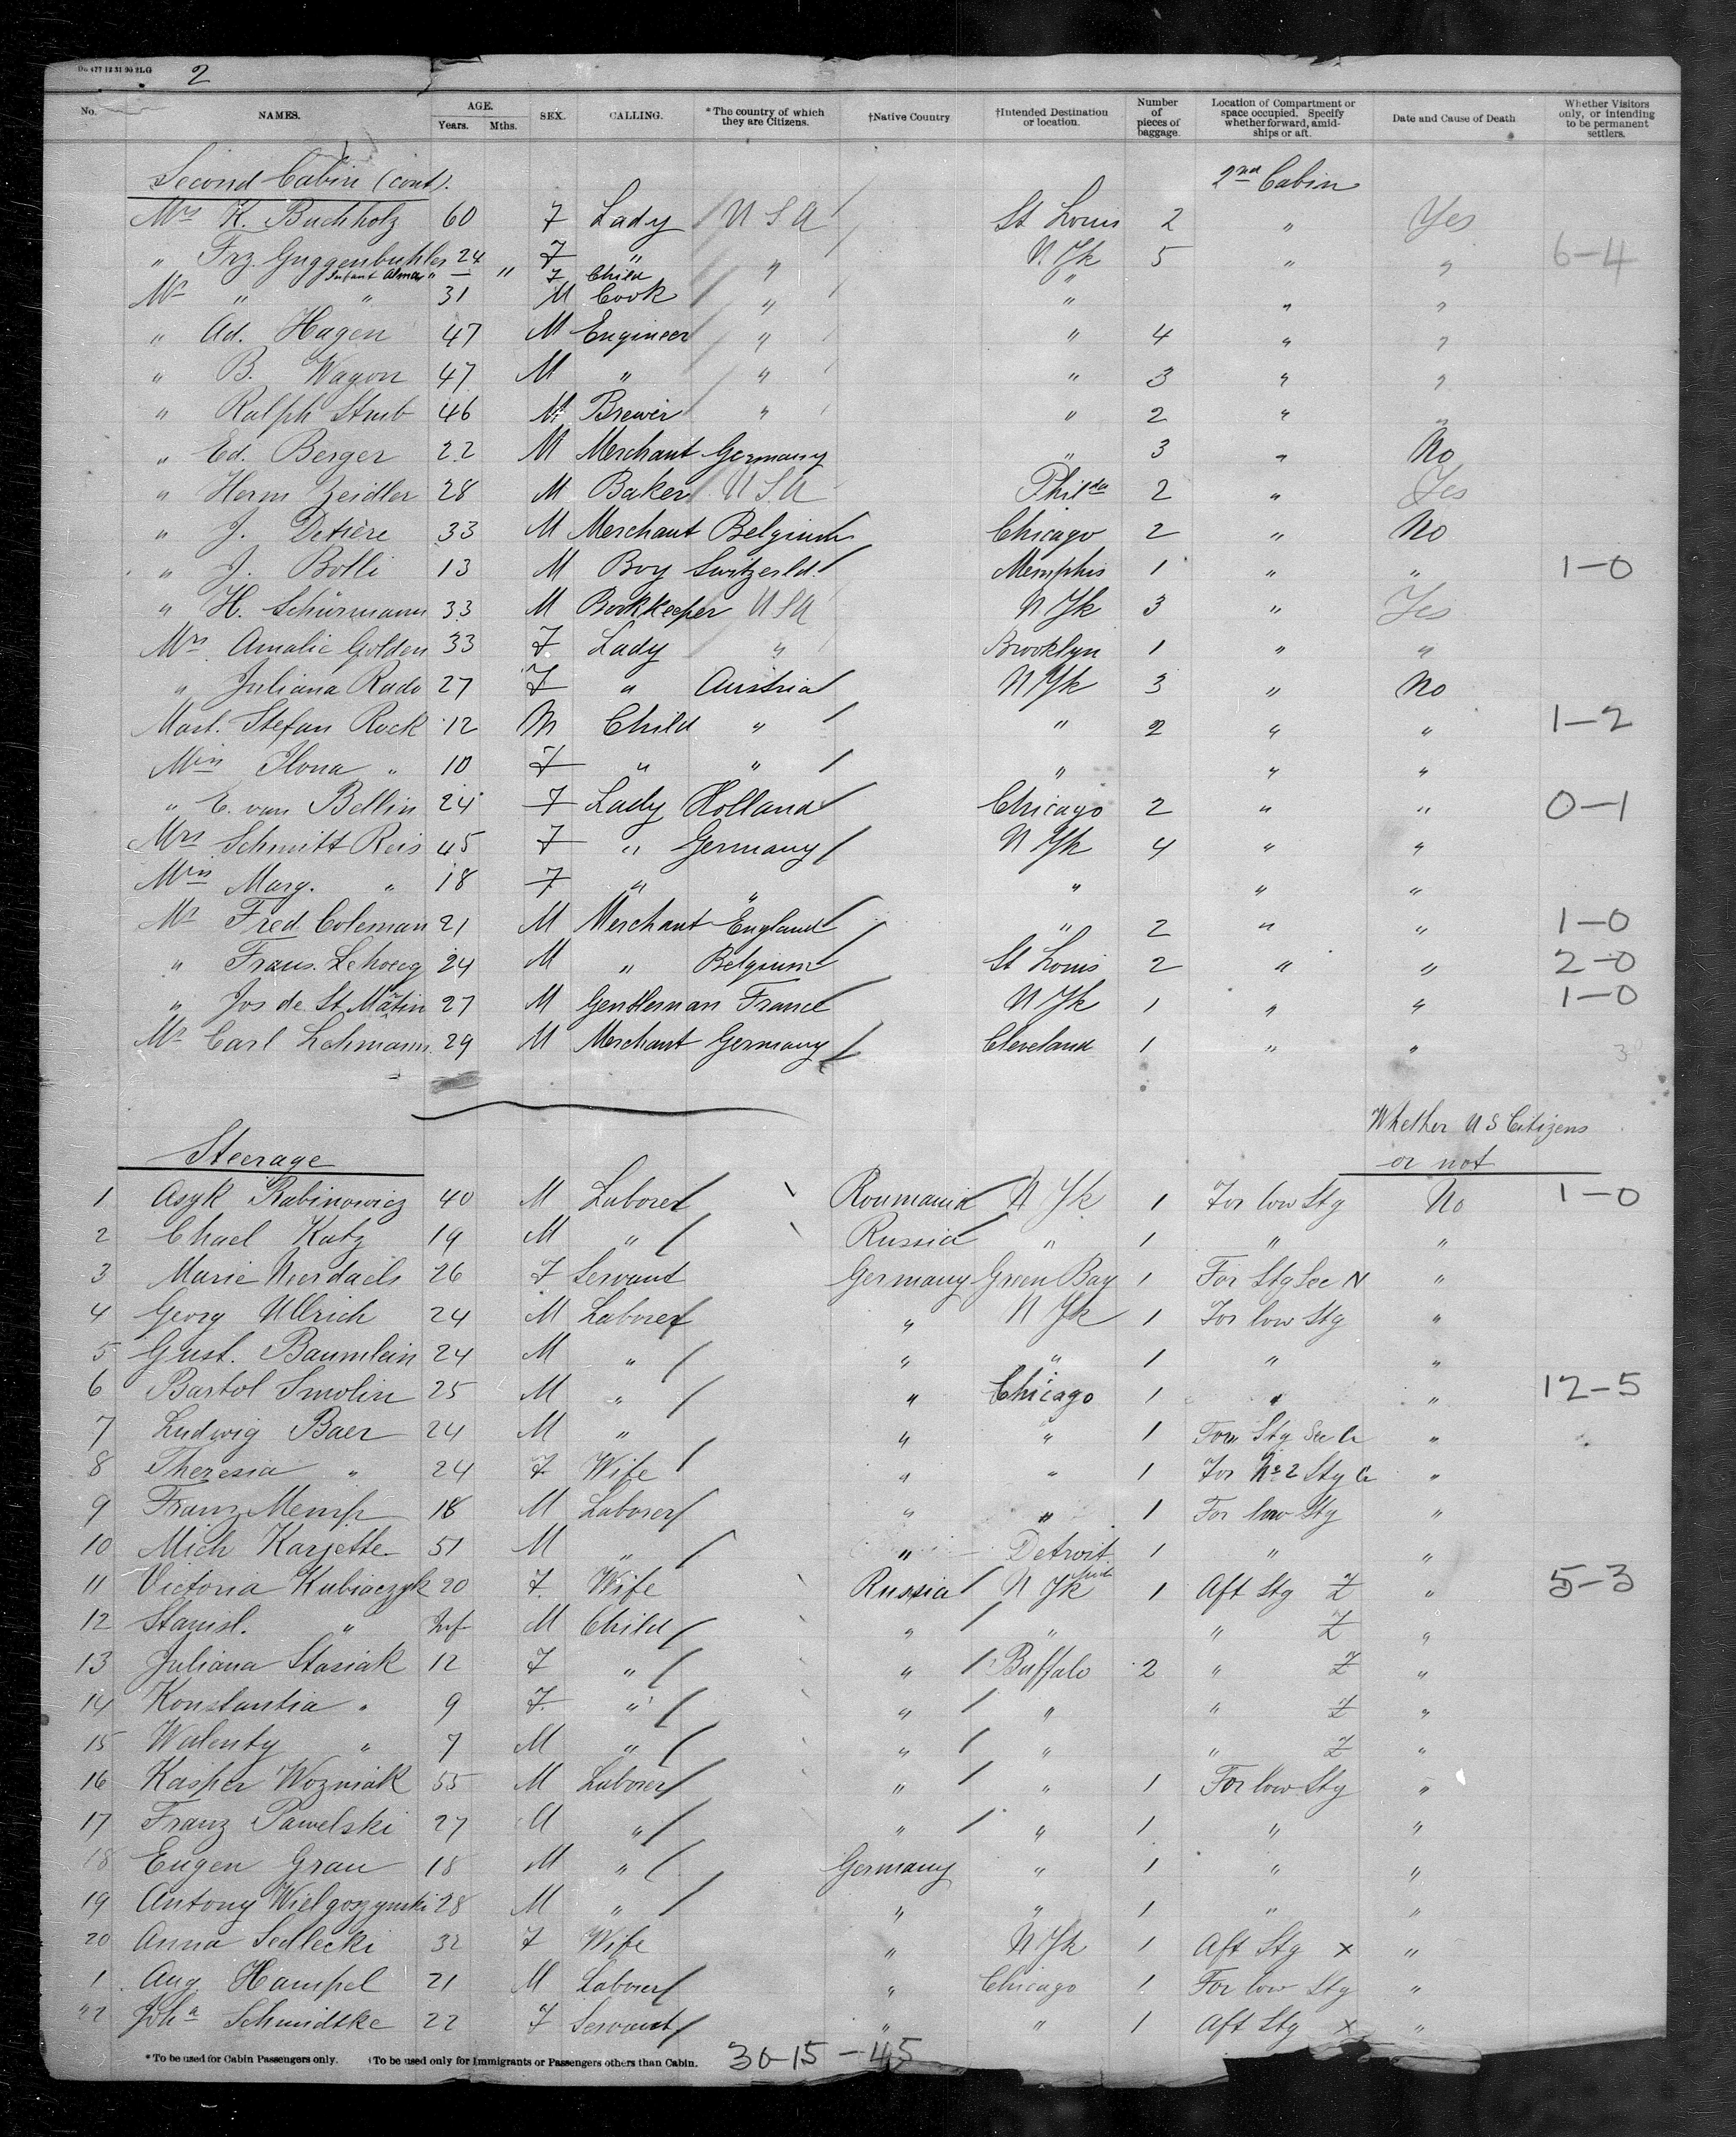 2
No. NAMES. AGE. Years. Mths. SEX. CALLING. *The country of which they are Citizens. †Native Country †Intended Destination or location. Number of pieces of baggage. Location of Compartment or space occupied. Specify whether forward, amidships or aft. Date and Cause of Death Whether Visitors only, or intending to be permanent settlers.
Second Cabin (cont). 2nd Cabin
Mrs K. Buchholz 60 F Lady U S A St Louis 2 " Yes
" Frz. Guggenbuhler 24 F " " N. Yk 5 " " 6-4
Infant Alma " — " F Child "
Mr " " 31 M Cook " " " "
" Ad. Hagen 47 M Engineer " " 4 " "
" B. Wagon 47 M " " " 3 " "
" Ralph Stub 46 M Brewer " " 2 " "
" Ed. Berger 22 M Merchant Germany " 3 " No
" Herm Zeidler 28 M Baker U S A Philda 2 " Yes
" J. Detière 33 M Merchant Belgium Chicago 2 " No
" J. Bolli 13 M Boy Switzerld. Memphis 1 " " 1-0
" H. Schürmann 33 M Bookkeeper U S A N Yk 3 " Yes
Mrs Amalie Golden 33 F Lady " Brooklyn 1 " "
" Juliana Rado 27 F " Austria N Yk 3 " No
Mast. Stefan Rock 12 M Child " " 2 " " 1-2
Miss Ilona " 10 F " " " " "
" E. van Bellin 24 F Lady Holland Chicago 2 " " 0-1
Mrs Schmitt Reis 45 F " Germany N Yk 4 " "
Miss Marg. " 18 F " " " " "
Mr Fred Coleman 21 M Merchant England " 2 " " 1-0
" Frans. Lehoecq 24 M " Belgium St Louis 2 " " 2-0
" Jos de St Matin 27 M Gentleman France N Yk 1 " " 1-0
Mr Carl Lehmann 29 M Merchant Germany Cleveland 1 " " 3
Whether U S Citizens
Steerage or not
1 Asyk Rabinowicz 40 M Laborer Roumania N Yk 1 For low Stg No 1-0
2 Chael Katz 19 M " Russia " 1 " "
3 Marie Neerdaels 26 F Servant Germany Green Bay 1 For Stg Sec N "
4 Georg Ullrich 24 M Laborer " N Yk 1 For low Stg "
5 Gust. Baumlein 24 M " " " 1 " "
6 Bartol Smolin 25 M " " Chicago 1 " " 12-5
7 Ludwig Baer 24 M " " " 1 Forw Stg Sec C "
8 Theresia " 24 F Wife " " 1 For No 2 Stg C "
9 Franz Memp 18 M Laborer " " 1 For low Stg "
10 Mich Karjette 51 M " " Detroit 1 " "
11 Victoria Kubiaczyk 20 F. Wife Russia N Yk 1 Aft Stg Z " 5-3
12 Stanisl. " Inf M Child " " " Z "
13 Juliana Stasiak 12 F " " Buffalo 2 " Z "
14 Konstantia " 9 F " " " " Z "
15 Walenty " 7 M " " " " Z "
16 Kasper Wozniak 55 M Laborer " " 1 For low Stg "
17 Franz Pawelski 27 M " " " 1 " "
18 Eugen Grau 18 M " Germany " 1 " "
19 Antony Wielgoszynski 28 M " " " 1 " "
20 Anna Sedlecki 32 F Wife " N Yk 1 Aft Stg x "
1 Aug Hampel 21 M Laborer " Chicago 1 For low Stg "
"2 Joha Schmidtke 22 F Servant " " 1 Aft Stg x "
*To be used for Cabin Passengers only. †To be used only for Immigrants or Passengers others than Cabin. 30-15-45